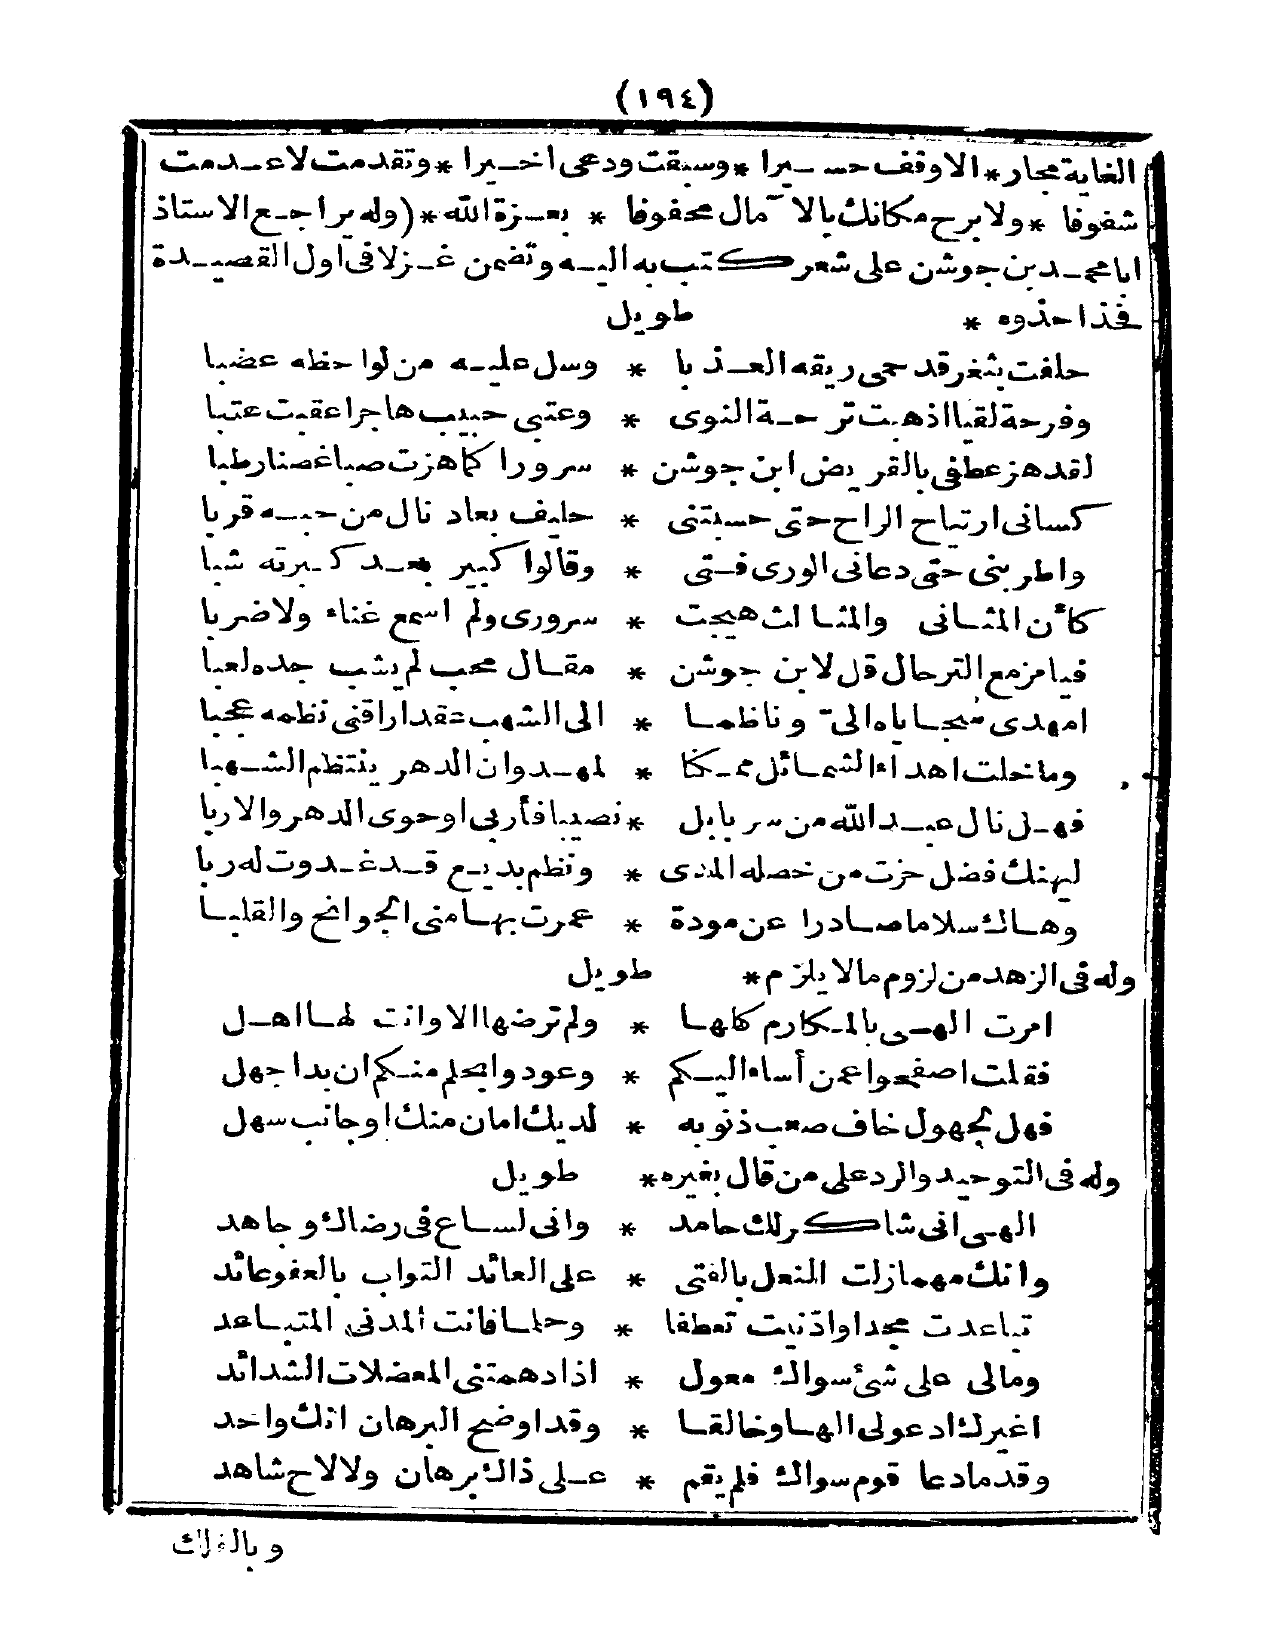 (١٩٤)
الغاية مجار * الا وقف حسيرا * وسبقت ودعى اخيرا * وتقدمت لاعدمت
شفوفا * ولا برح مكانك بالا مال محفوفا * بعزة الله * (وله يراجع الاستاذ
ابا محمد بن جوشن على شعر كتب به اليه وتضمن غزلا فى اول القصيدة
فحذا حذوه * طويل
حلفت بثغر قد حمى ريقه العذبا * وسل عليه من لواحظه عضبا
وفرحة لقيا اذهبت ترحة النوى * وعتبى حبيب هاجرا عقبت عتبا
لقد هز عطفى بالقريض ابن جوشن * سرورا كما هزت صبا غصنا رطبا
كسانى ارتياح الراح حتى حسبتنى * حليف بعاد نال من حبه قربا
واطربنى حتى دعانى الورى فتى * وقالوا كبير بعد كبرته شبا
كأن المثانى والمثالث هيجت * سرورى ولم اسمع غناء ولا ضربا
فيا مزمع الترحال قل لابن جوشن * مقال محب لم يشب جده لعبا
امهدى سجاياه الى وناظما * الى الشهب عقدا راقنى نظمه عجبا
وما خلت اهداء الشمائل ممكنا * لمهد وان الدهر ينتظم الشهبا
فهل نال عبد الله من سر بابل * نصيبا فأربى او حوى الدهر والاربا
ليهنك فضل حزت من خصله المدى * ونظم بديع قد غدوت له ربا
وهاك سلاما صادرا عن مودة * عمرت بها منى الجوانح والقلبا
وله فى الزهد من لزوم ما لا يلزم * طويل
امرت الهى بالمكارم كلها * ولم ترضها الا وانت لها اهل
فقلت اصفحوا عمن أساء اليكم * وعودوا بحلم منكم ان بدا جهل
فهل لجهول خاف صعب ذنوبه * لديك امان منك او جانب سهل
وله فى التوحيد والرد على من قال بغيره * طويل
الهى انى شاكر لك حامد * وانى لساع فى رضاك وجاهد
وانك مهما زلت النعل بالفتى * على العائد التواب بالعفو عائد
تباعدت مجدا وادنيت تعطفا * وحلما فانت المدنى المتباعد
ومالى على شئ سواك معول * اذا دهمتنى المعضلات الشدائد
اغيرك ادعولى الها وخالقا * وقد اوضح البرهان انك واحد
وقد ما دعا قوم سواك فلم يقم * على ذاك برهان ولا لاح شاهد
وبالفلك